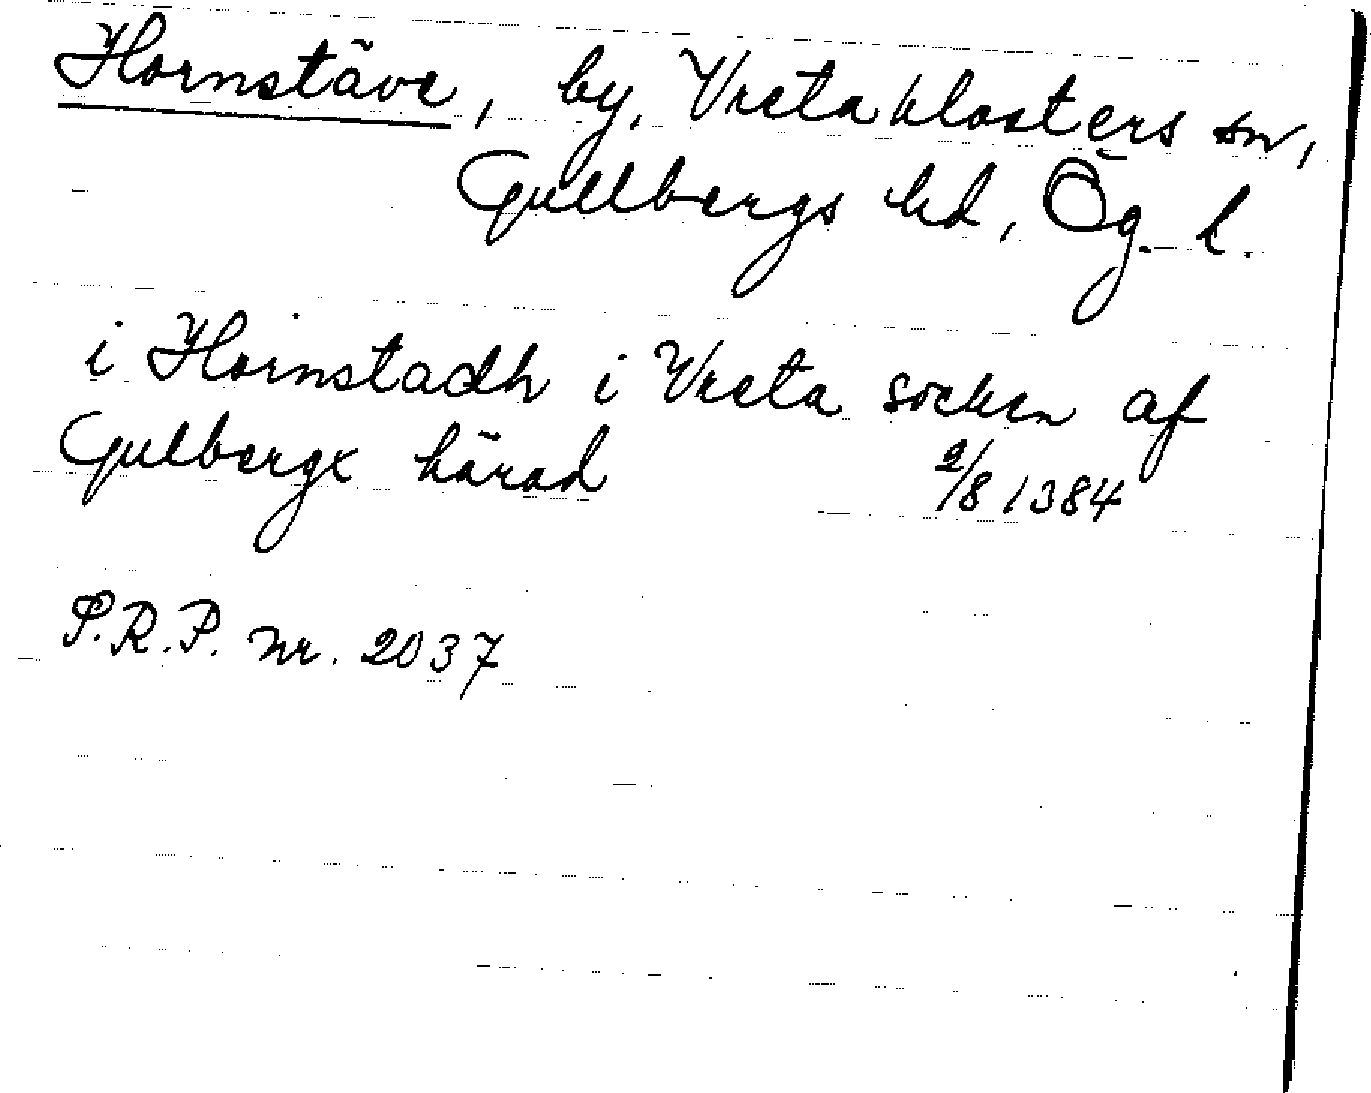 Hornstäve, by, Vreta klosters sn,
Gullbergs hd, Ög. l.
i Hornstadh i Vreta socken af
Gulbergx härad 2/8 1384
P.R.P. nr. 2037